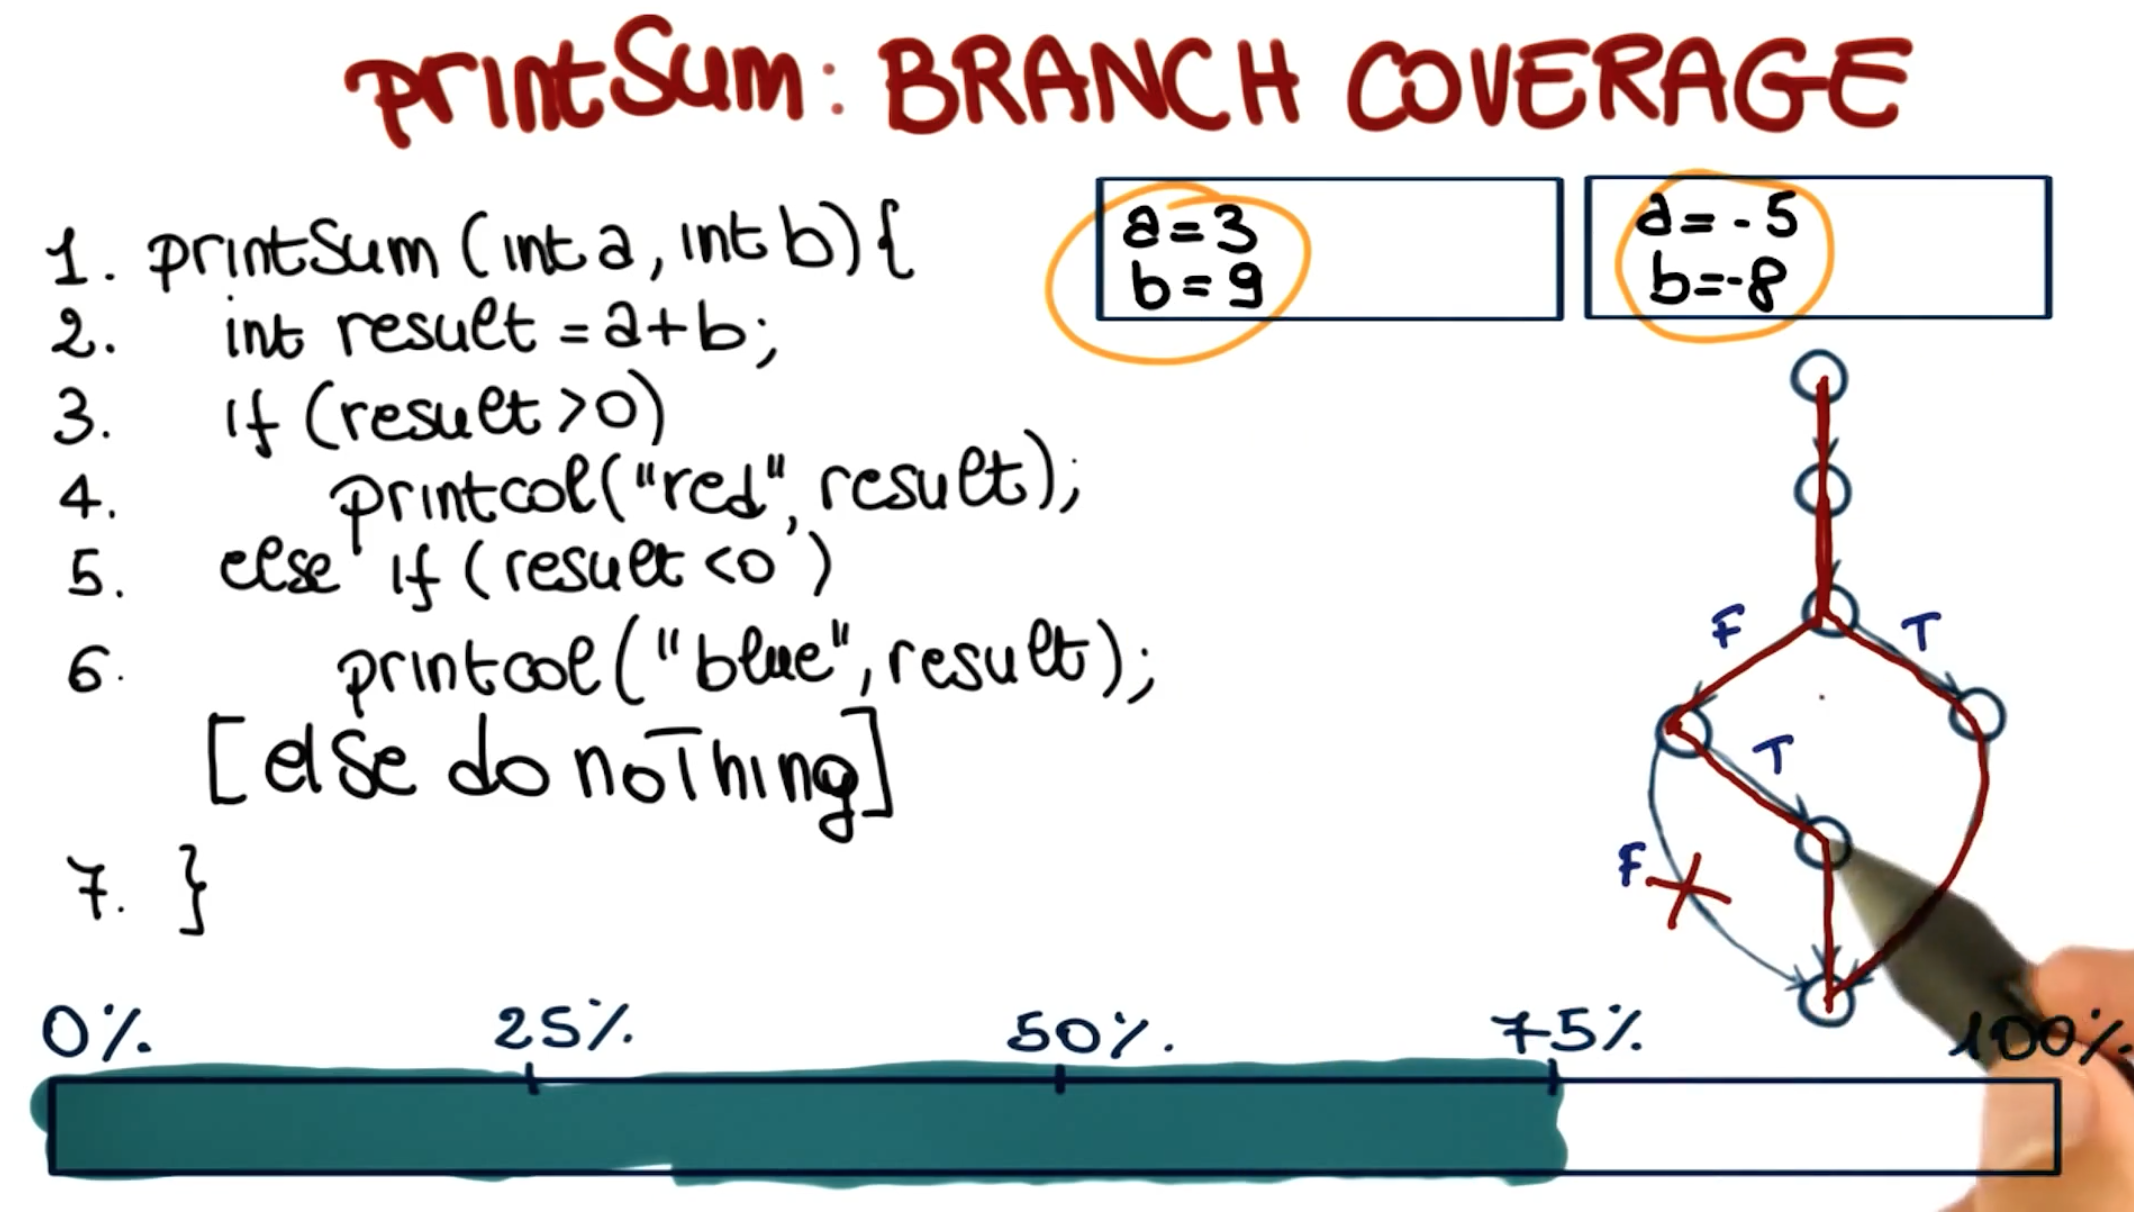 printSum: BRANCH COVERAGE
1. printSum (int a, int b) {
2. int result = a+b;
3. if (result >0)
4. printcol("red", result);
5. else if (result <0)
6. printcol("blue", result);
[else do noThing]
7. }
a = 3
b = 9
a = -5
b = -8
F
T
T
F
0% 25% 50% 75% 100%